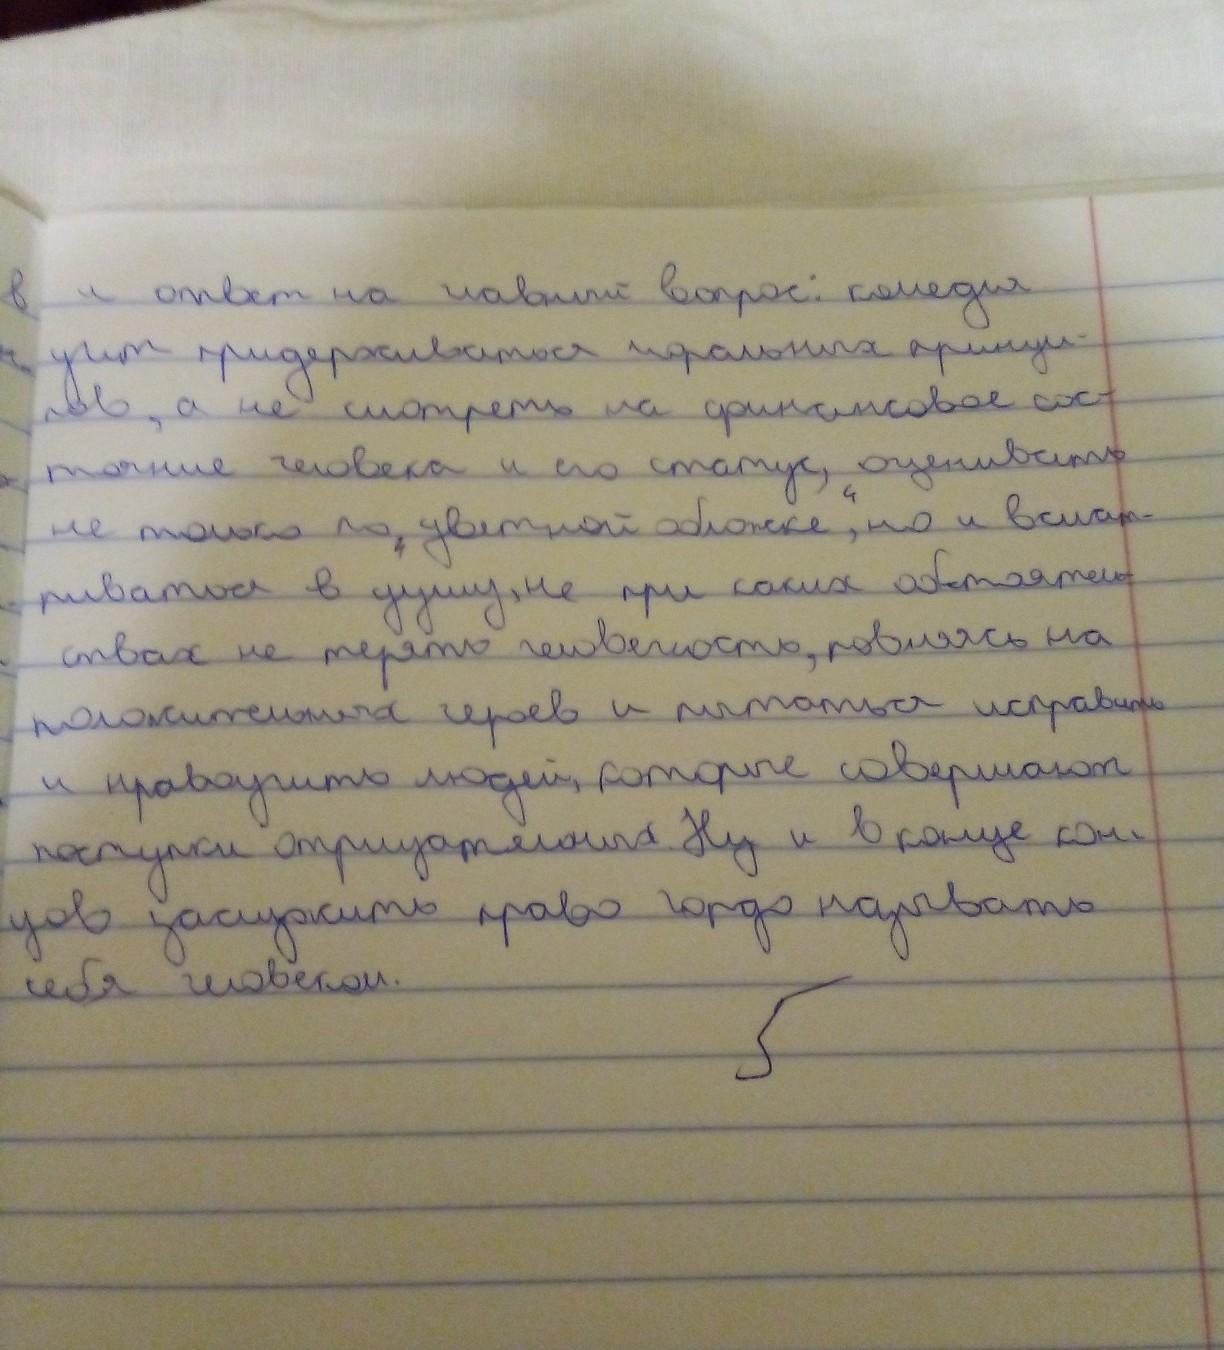 и ответ на главный вопрос: комедия
учит придерживаться моральных принци-
пов, а не смотреть на финансовое сос-
тояние человека и его статус, оценивать
не только по „цветной обложке“, но и всмат-
риваться в душу, не при каких обстоятель
ствах не терять человечность, ровняясь на
положительных героев и пытаться исправить
и нравоучить людей, которые совершают
поступки отрицательных. Ну и в конце кон-
цов заслужить право гордо называть
себя человеком.